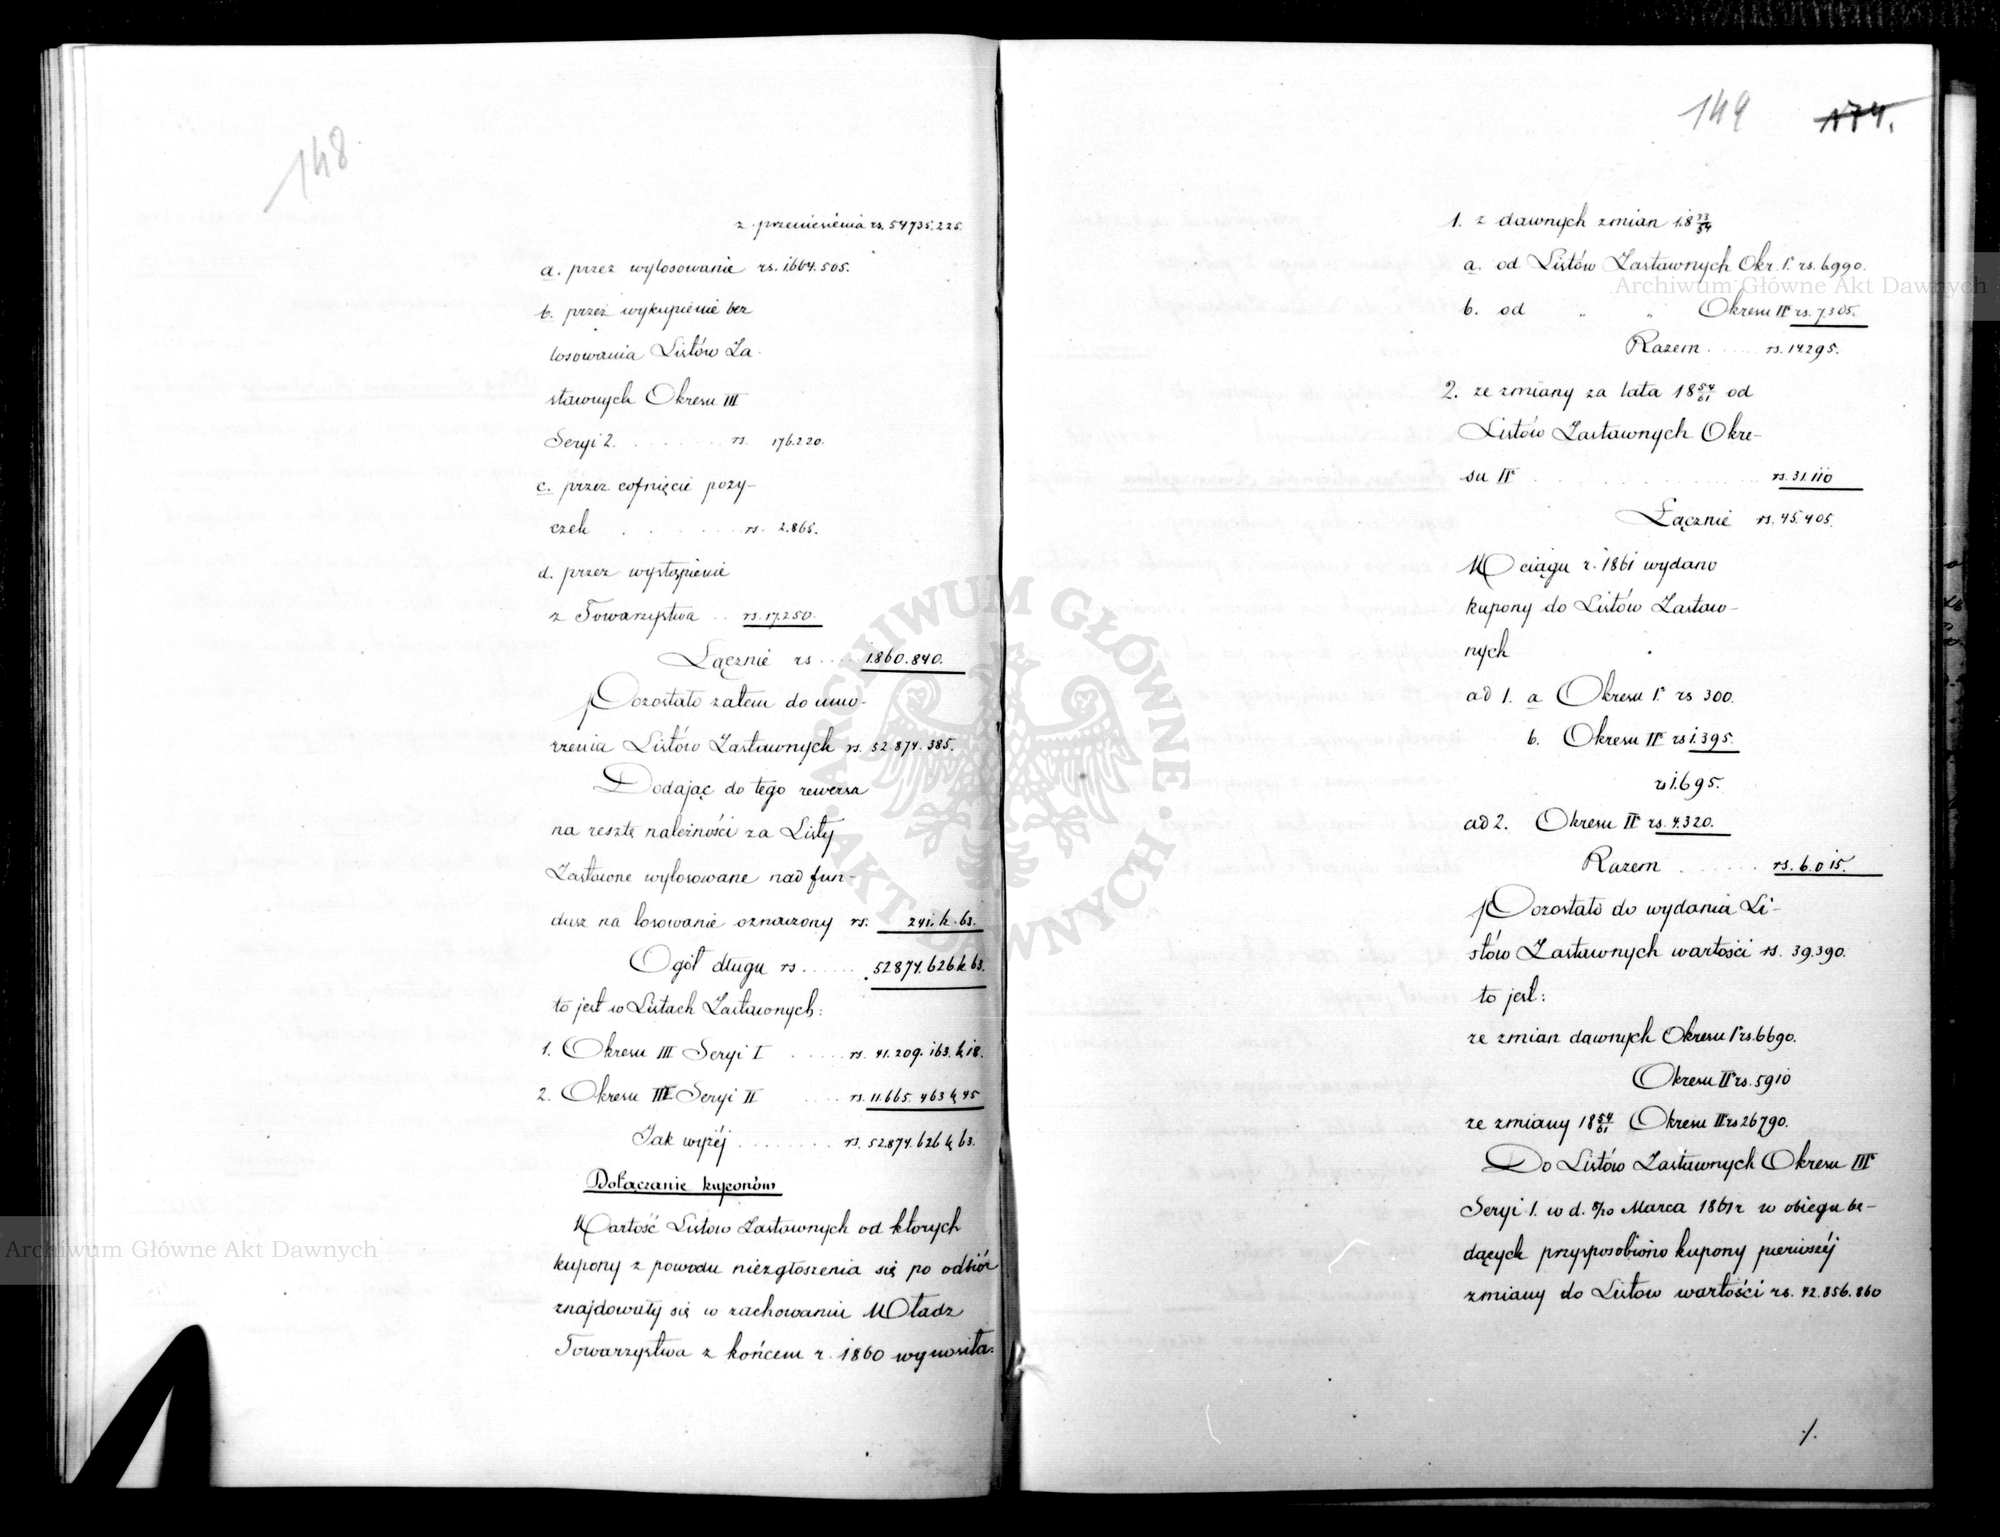 148
z przeniesienia rs. 54735.225.
a. przez wylosowanie rs. 1.664.505.
b. przez wykupienie bez
losowania Listów Za-
stawnych Okresu III
Seryi 2. . . . . . . . rs. 176.220.
c. przez cofnięcie poży-
czek . . . . . . . rs. 2.865.
d. przez wystąpienie
z Towarzystwa . . rs. 17.250.
Łącznie rs . . . . 1.860.840.
Pozostało zatem do umo-
rzenia Listów Zastawnych rs. 52.874.385.
Dodając do tego rewersa
na resztę należności za Listy
Zastawne wylosowane nad fun-
dusz na losowanie oznaczony rs. 241. k. 63.
Ogół długu rs . . . . . . 52874.626 k 63.
to jest w Listach Zastawnych:
1. Okresu III Seryi I . . . . . rs. 41.209.163. k 18.
2. Okresu III Seryi II . . . . rs. 11.665.463 k 45
Jak wyżéj . . . . . . . rs. 52.874.626 k 63.
Dołączanie kuponów
Wartość Listów Zastawnych od których
kupony z powodu niezgłoszenia się po odbiór
znajdowały się w zachowaniu Władz
Towarzystwa z końcem r. 1860 wynosiła.
149 174.
1. z dawnych zmian 18 33/54
a. od Listów Zastawnych Okr. 1º rs. 6990.
b. od „ „ Okresu IIº rs. 7.305.
Razem . . . . . rs. 14295.
2. ze zmiany za lata 18 54/61 od
Listów Zastawnych Okre-
su IIº . . . . . . . . . . rs. 31.110
Łącznie rs. 45.405.
W ciągu r. 1861 wydano
kupony do Listów Zastaw-
nych
ad 1. a Okresu 1º rs 300.
b. Okresu IIº rs 1.395.
rs 1.695.
ad 2. Okresu IIº rs. 4.320.
Razem . . . . . . rs. 6.015.
Pozostało do wydania Li-
stów Zastawnych wartości rs. 39.390.
to jest:
ze zmian dawnych Okresu 1º rs. 6690.
Okresu IIº rs. 5910
ze zmiany 18 54/61 Okresu IIº rs 26790.
Do Listów Zastawnych Okresu IIIº
Seryi 1. w d. 8/20 Marca 1861 r w obiegu bę-
dących przysposobiono kupony pierwszéj
zmiany do Listów wartości rs. 42.856.860
./.
Archiwum Główne Akt Dawnych
Archiwum Główne Akt Dawnych
ARCHIWUM GŁÓWNE · AKT DAWNYCH ·